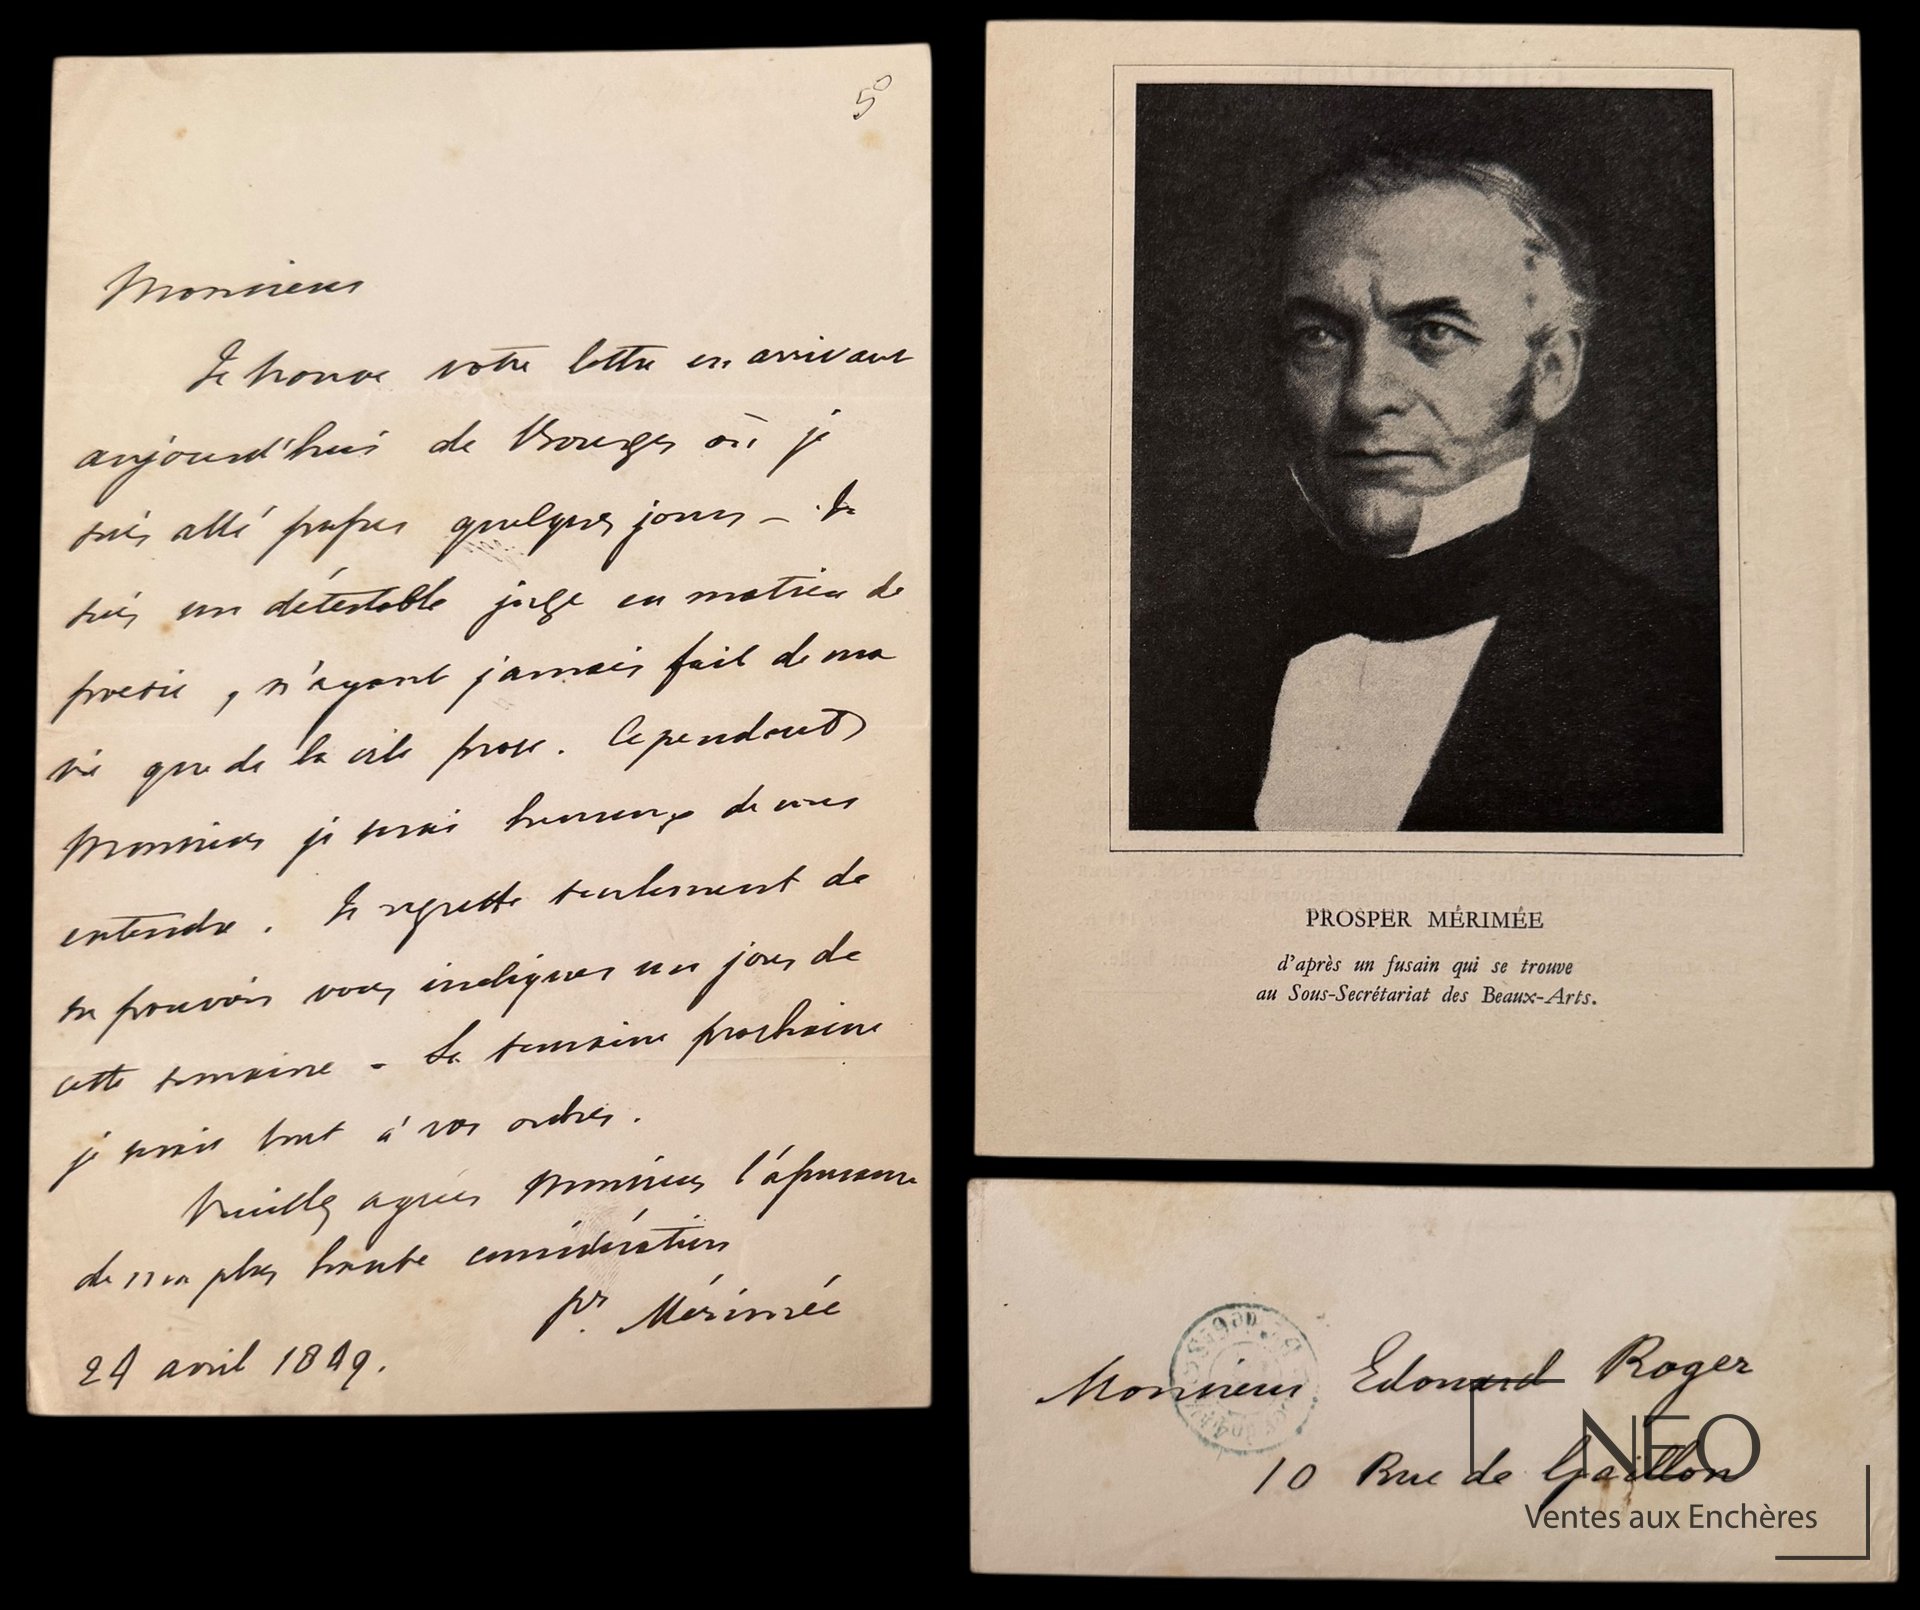 50
Monsieur
Je trouve votre lettre en arrivant
aujourd'hui de Bourges où je
suis allé passer quelques jours – Je
suis un détestable juge en matière de
poesie, n'ayant jamais fait de ma
vie que de la vile prose. Cependant
Monsieur je serai heureux de vous
entendre. Je regrette seulement de
ne pouvoir vous indiquer un jour de
cette semaine – La semaine prochaine
je serai tout à vos ordres.
Veuillez agréer Monsieur l'assurance
de ma plus haute considération
Pr. Mérimée
24 avril 1849.
PROSPER MÉRIMÉE
d'après un fusain qui se trouve
au Sous-Secrétariat des Beaux-Arts.
Monsieur Edouard Roger
10 Rue de Gaillon
NEO
Ventes aux Enchères